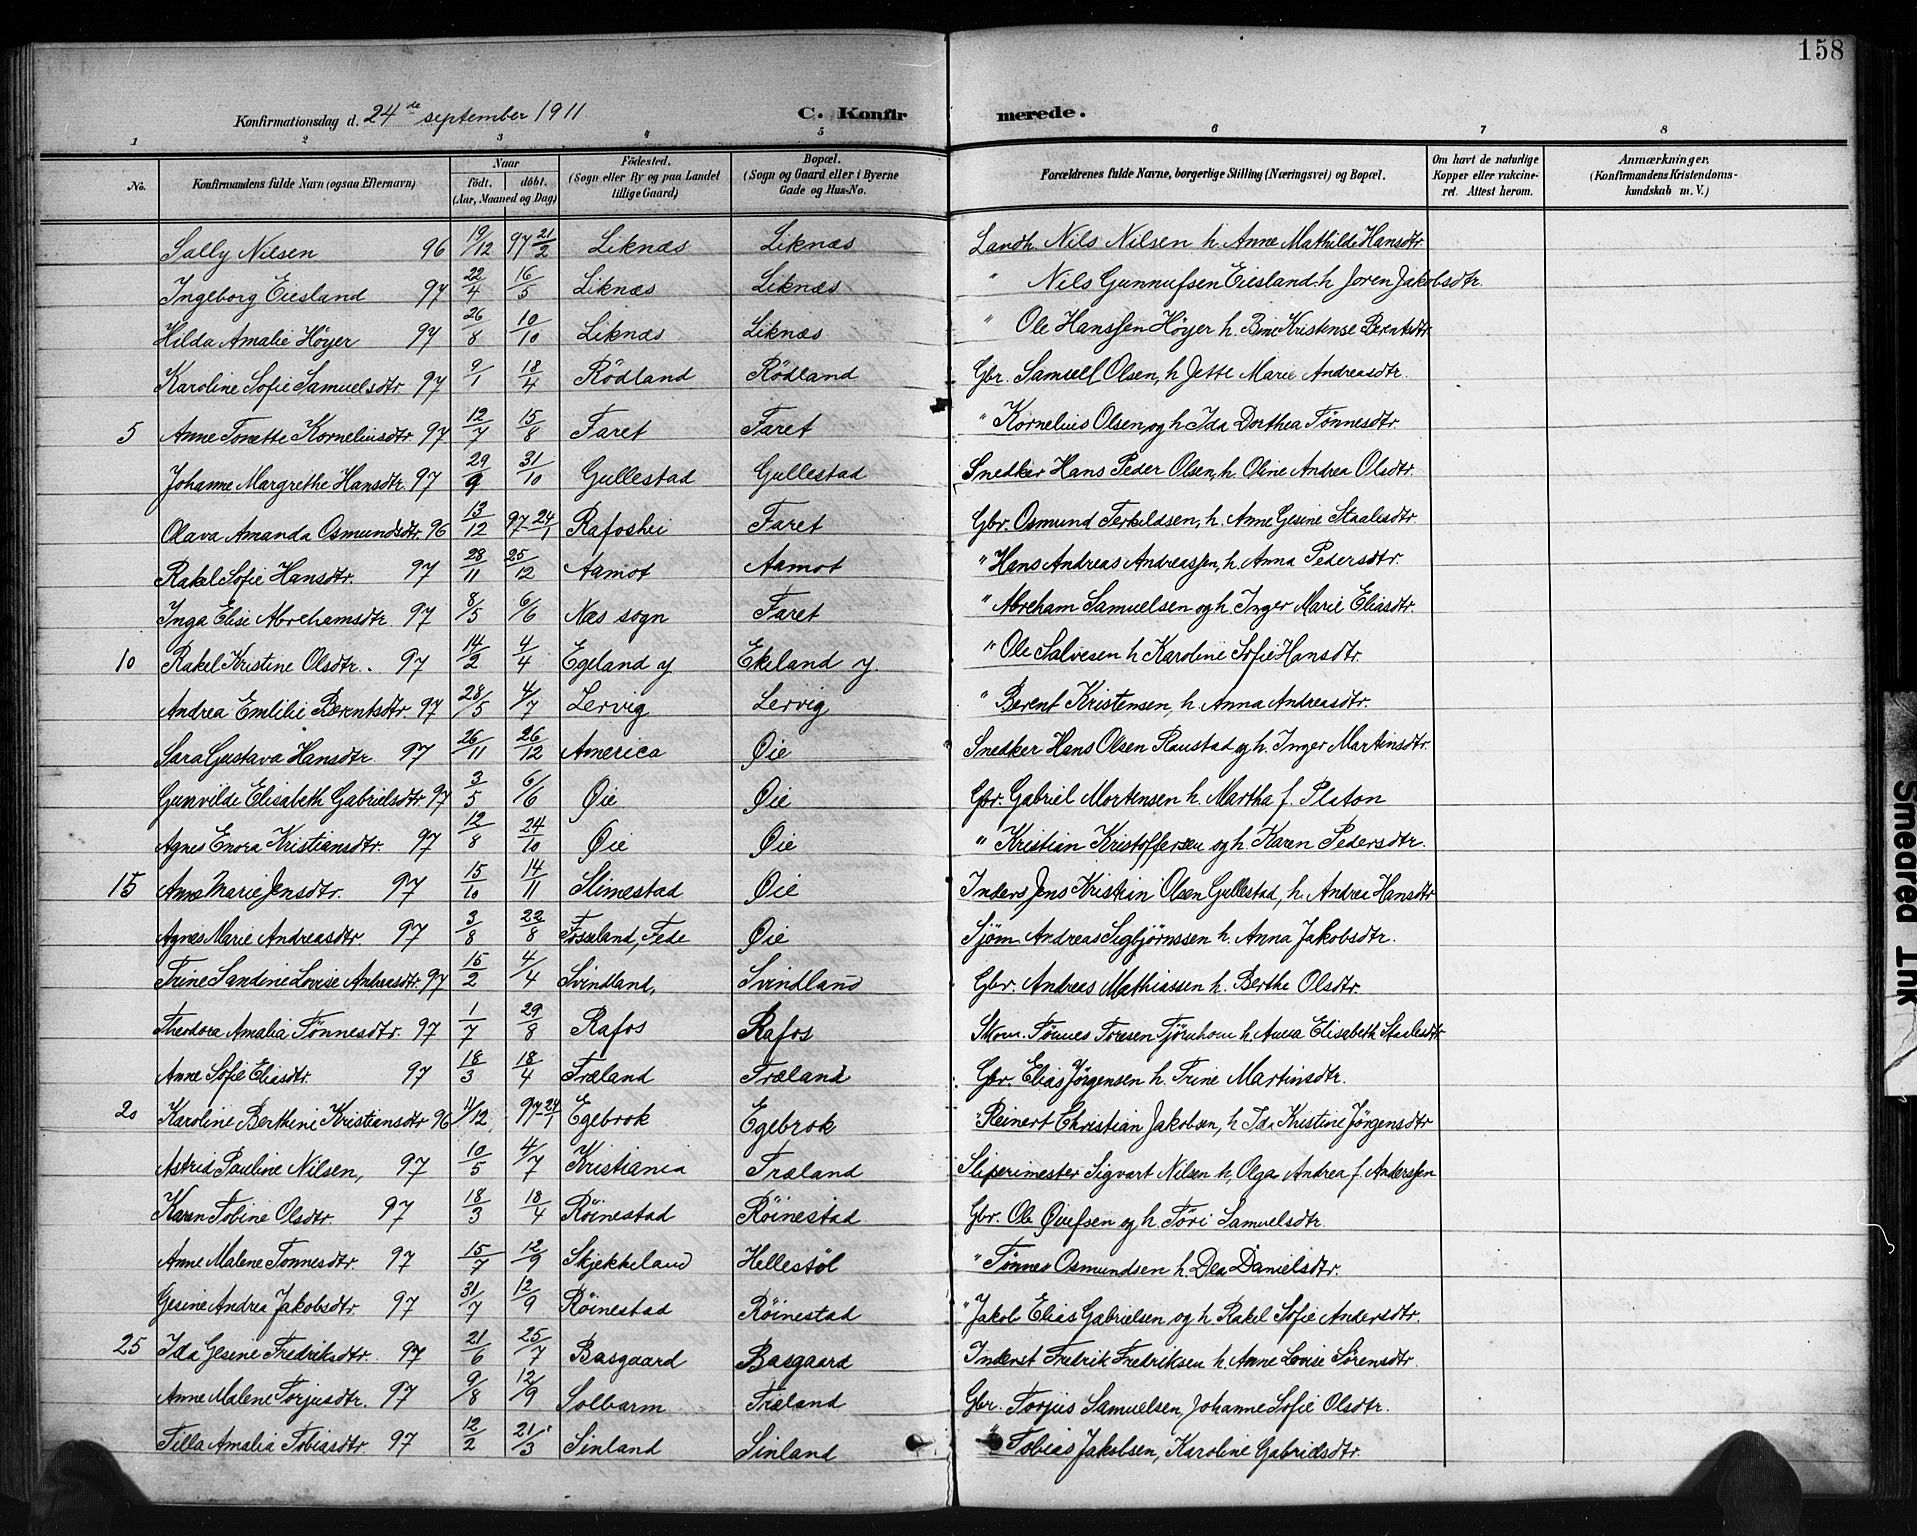 158
Konfirmationsdag d. 24de september 1911 C. Konfirmerede.
1 2 3 4 5 6 7 8
No. Konfirmandens fulde Navn (ogsaa Efternavn) Naar født. døbt. (Aar, Maaned og Dag) Fødested. (Sogn eller By og paa Landet tillige Gaard) Bopæl. (Sogn og Gaard eller i Byerne Gade og Hus-No. Forældrenes fulde Navne, borgerlige Stilling (Næringsvei) og Bopæl. Om havt de naturlige Kopper eller vakcineret. Attest herom. Anmærkninger, (Konfirmandens Kristendomskundskab m. V.)
Sally Nilsen 96 19/12 97 21/2 Liknæs Liknæs Landh. Nils Nilsen h. Anne Mathilde Hansdtr.
Ingeborg Eiesland 97 22/4 16/5 Liknæs Liknæs " Nils Gunnufsen Eiesland h Joren Jakobsdtr.
Hilda Amalie Höyer 97 26/8 10/10 Liknæs Liknæs " Ole Hanssen Höyer h. Bine Kristense Berntsdtr
Karoline Sofie Samuelsdtr 97 9/1 18/4 Rödland Rödland Gbr. Samuel Olsen, h Jette Marie Andreasdtr.
5 Anne Tonette Korneliusdtr. 97 12/7 15/8 Faret Faret " Kornelius Olsen og h Ida Dorthea Tønnesdtr.
Johanne Margrethe Hansdtr. 97 29/9 31/10 Gullestad Gullestad Snedker Hans Peder Olsen, h. Oline Andrea Olsdtr.
Olava Amanda Osmundsdtr. 96 13/12 97-24/1 Rafoshei Faret Gbr. Osmund Terkildsen, h. Anne Gesine Staalesdtr.
Rakel Sofie Hansdtr. 97 28/11 25/12 Aamot Aamot " Hans Andreas Andreassen, h. Anna Pedersdtr.
Inga Elise Abrahamsdtr 97 8/5 6/6 Næs sogn Faret " Abraham Samuelsen og h. Inger Marie Eliasdtr.
10 Rakel Kristine Olsdtr. 97 14/2 4/4 Egeland y Ekeland y. " Ole Salvesen h Karoline Sofie Hansdtr.
Andrea Emilie Berntsdtr 97 28/5 4/7 Lervig Lervig " Berent Kristensen, h. Anna Andreasdtr.
Sara Gustava Hansdtr. 97 26/11 26/12 America Øie Snedker Hans Olsen Raustad og h. Inger Martinsdtr.
Gunvilde Elisabeth Gabrielsdtr 97 3/5 6/6 Øie Øie Gbr. Gabriel Mortensen h. Martha f. Platon
Agnes Enora Kristiansdtr. 97 12/8 24/10 Øie Øie " Kristian Kristoffersen og h. Karen Pedersdtr.
15 Anne Marie Jensdtr. 97 15/10 14/11 Slimestad Øie Inders Jens Kristian Olsen Gullestad, h. Andrea Hansdtr
Agnes Marie Andreasdtr 97 3/8 22/8 Fosseland, Fede Øie Sjøm. Andreas Sigbjørnssen h. Anna Jakobsdtr.
Trine Sandine Lovise Andreasdtr. 97 15/2 4/4 Svindland, Svindland Gbr. Andreas Mathiassen h. Berthe Olsdtr.
Theodora Amalia Tønnesdtr. 97 1/7 29/8 Rafos Rafos Skom. Tønnes Toresen Tjørnhom h Anna Elisabeth Staalesdtr
Anne Sofie Eliasdtr. 97 18/3 18/4 Træland Træland Gbr. Elias Jørgensen h. Trine Martinsdtr.
20 Karoline Berthine Kristiansdtr 96 11/12 97-24/1 Egebrok Egebrok " Reinert Christian Jakobsen, h Ida Kristine Jörgensdtr
Astrid Pauline Nilsen, 97 10/5 4/7 Kristiania Træland Sliperimester Sigvart Nilsen h, Olga Andrea f. Anderssen
Karen Tobine Olsdtr. 97 18/3 18/4 Röinestad Röinestad Gbr. Ole Øiufsen og h. Töri Samuelsdtr.
Anne Malene Tonnesdtr. 97 15/7 12/9 Skjekkeland Hellestöl " Tönnes Osmundsen h. Dea Danielsdtr.
Gesine Andrea Jakobsdtr. 97 31/7 12/9 Röinestad Röinestad " Jakob Elias Gabrielsen og h Rakel Sofie Andersdtr.
25 Ida Gesine Fredriksdtr. 97 21/6 25/7 Basgaard Basgaard Inderst Fredrik Fredriksen h. Anne Lovise Sørensdtr.
Anne Malene Torjusdtr. 97 9/8 12/9 Solbarm Træland Gbr. Torjus Samuelsen, Johanne Sofie Olsdtr.
Tilla Amalia Tobiasdtr. 97 12/2 21/3 Sinland Sinland " Tobias Jakobsen, Karoline Gabrielsdtr.
Smeared Ink